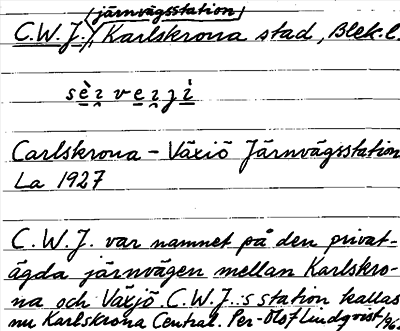 järnvägsstation
C.W.J., Karlskrona stad, Blek. l.
sè̱ꞇ v e̱ꞇ ȷ ì̱
Carlskrona - Växiö Järnvägsstation
La 1927
C.W.J. var namnet på den privat-
ägda järnvägen mellan Karlskro-
na och Växjö. C.W.J.:s station kallas
nu Karlskrona Central. Per-Olof Lindqvist/96.